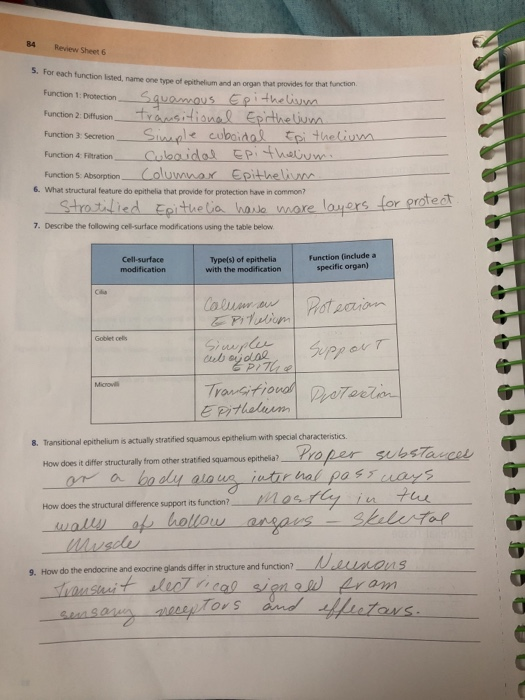 84 Review Sheet 6
5. For each function listed, name one type of epithelium and an organ that provides for that function.
Function 1: Protection Squamous Epithelium
Function 2: Diffusion transitional Epithelium
Function 3: Secretion Simple cuboidal Epithelium
Function 4: Filtration Cuboidal Epithelium.
Function 5: Absorption Columnar Epithelium
6. What structural feature do epithelia that provide for protection have in common?
Stratified Epithelia have more layers for protect
7. Describe the following cell-surface modifications using the table below.
Cell-surface modification
Type(s) of epithelia with the modification
Function (include a specific organ)
Cilia
Columnar
Epitelium
Protection
Goblet cells
Simple
cuboidal
Epithe
Support
Microvilli
Transitional
Epithelium
Protection
8. Transitional epithelium is actually stratified squamous epithelium with special characteristics.
How does it differ structurally from other stratified squamous epithelia? Proper substances
or a body along internal passways
How does the structural difference support its function? Mostly in the
walls of hollow organs - Skeletal
Muscle
9. How do the endocrine and exocrine glands differ in structure and function?
Transmit electrical signals from
sensory receptors and effectors.